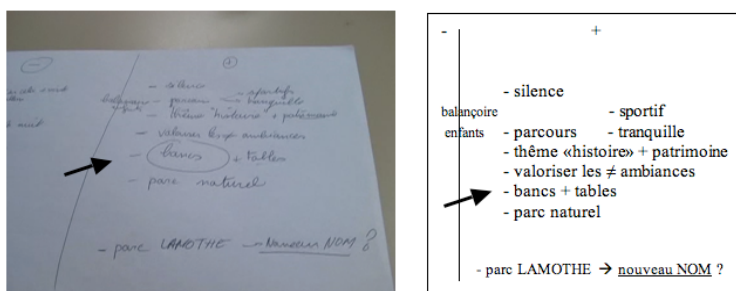 -
+
- silence
- sportifs
balançoire
enfants
- parcours
tranquille
- thème "histoire" + patrimoine
- valoriser les ≠ ambiances
- bancs + tables
- parc naturel
- parc LAMOTHE → Nouveau NOM ?
- +
- silence
balançoire - sportif
enfants - parcours - tranquille
- thème «histoire» + patrimoine
- valoriser les ≠ ambiances
- bancs + tables
- parc naturel
- parc LAMOTHE → nouveau NOM ?